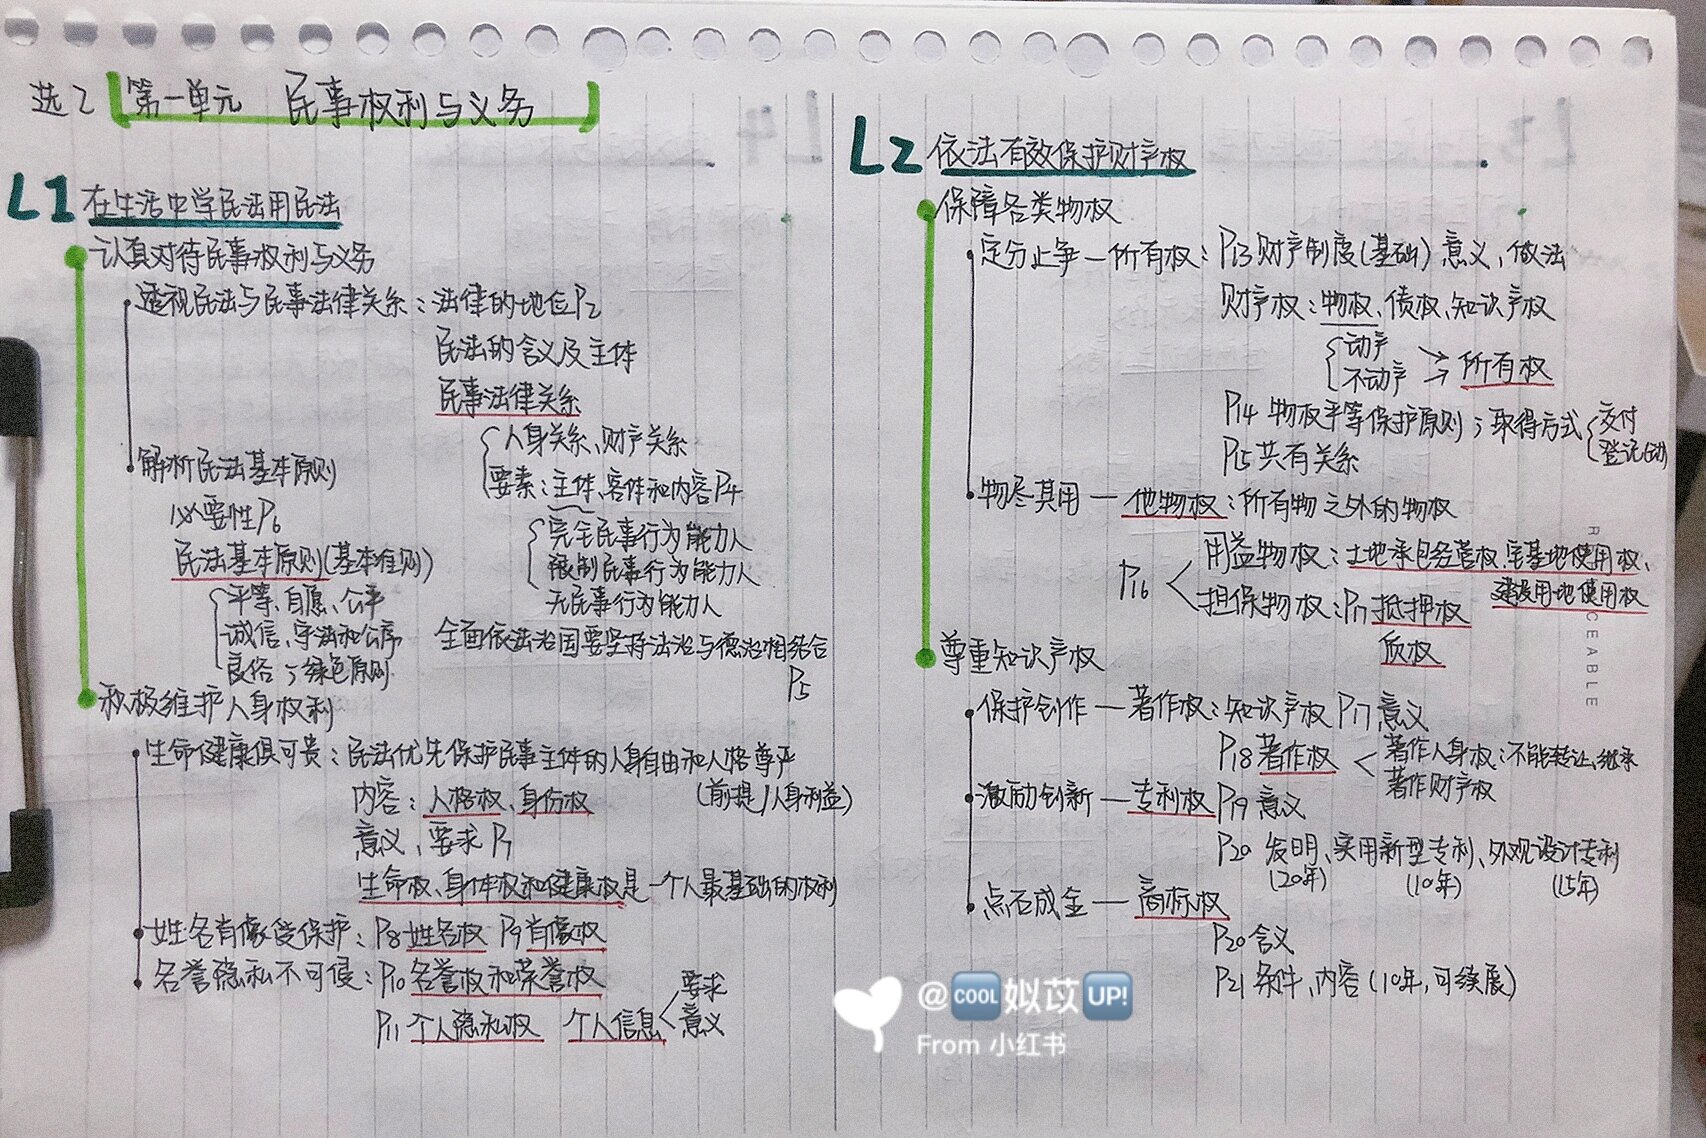 选2 第一单元 民事权利与义务
L1 在生活中学民法用民法
认真对待民事权利与义务
透视民法与民事法律关系：法律的地位P2
民法的含义及主体
民事法律关系
人身关系、财产关系
要素：主体、客体和内容P4
完全民事行为能力人
限制民事行为能力人
无民事行为能力人
全面依法治国要坚持法治与德治相结合
P5
解析民法基本原则
必要性P6
民法基本原则(基本准则)
平等、自愿、公平
诚信、守法和公序
良俗；绿色原则
积极维护人身权利
生命健康俱可贵：民法优先保护民事主体的人身自由和人格尊严
(前提/人身利益)
内容：人格权、身份权
意义、要求 P7
生命权、身体权和健康权是一个人最基础的权利
姓名肖像受保护：P8姓名权 P9肖像权
名誉隐私不可侵：P10名誉权和荣誉权
P11个人隐私权 个人信息
要求
意义
L2 依法有效保护财产权
保障各类物权
定分止争—所有权：P13财产制度(基础)意义、做法
财产权：物权、债权、知识产权
动产
不动产
所有权
P14 物权平等保护原则；取得方式
交付
登记(动)
P15共有关系
物尽其用—他物权：所有物之外的物权
P16
用益物权：土地承包经营权、宅基地使用权、
建设用地使用权
担保物权：P17抵押权
质权
尊重知识产权
保护创作—著作权：知识产权P17意义
P18著作权
著作人身权：不能转让、继承
著作财产权
激励创新—专利权P19意义
P20 发明、实用新型专利、外观设计专利
(20年) (10年) (15年)
点石成金—商标权
P20含义
P21条件、内容(10年,可续展)
R CEABLE
@COOL姒苡UP!
From 小红书